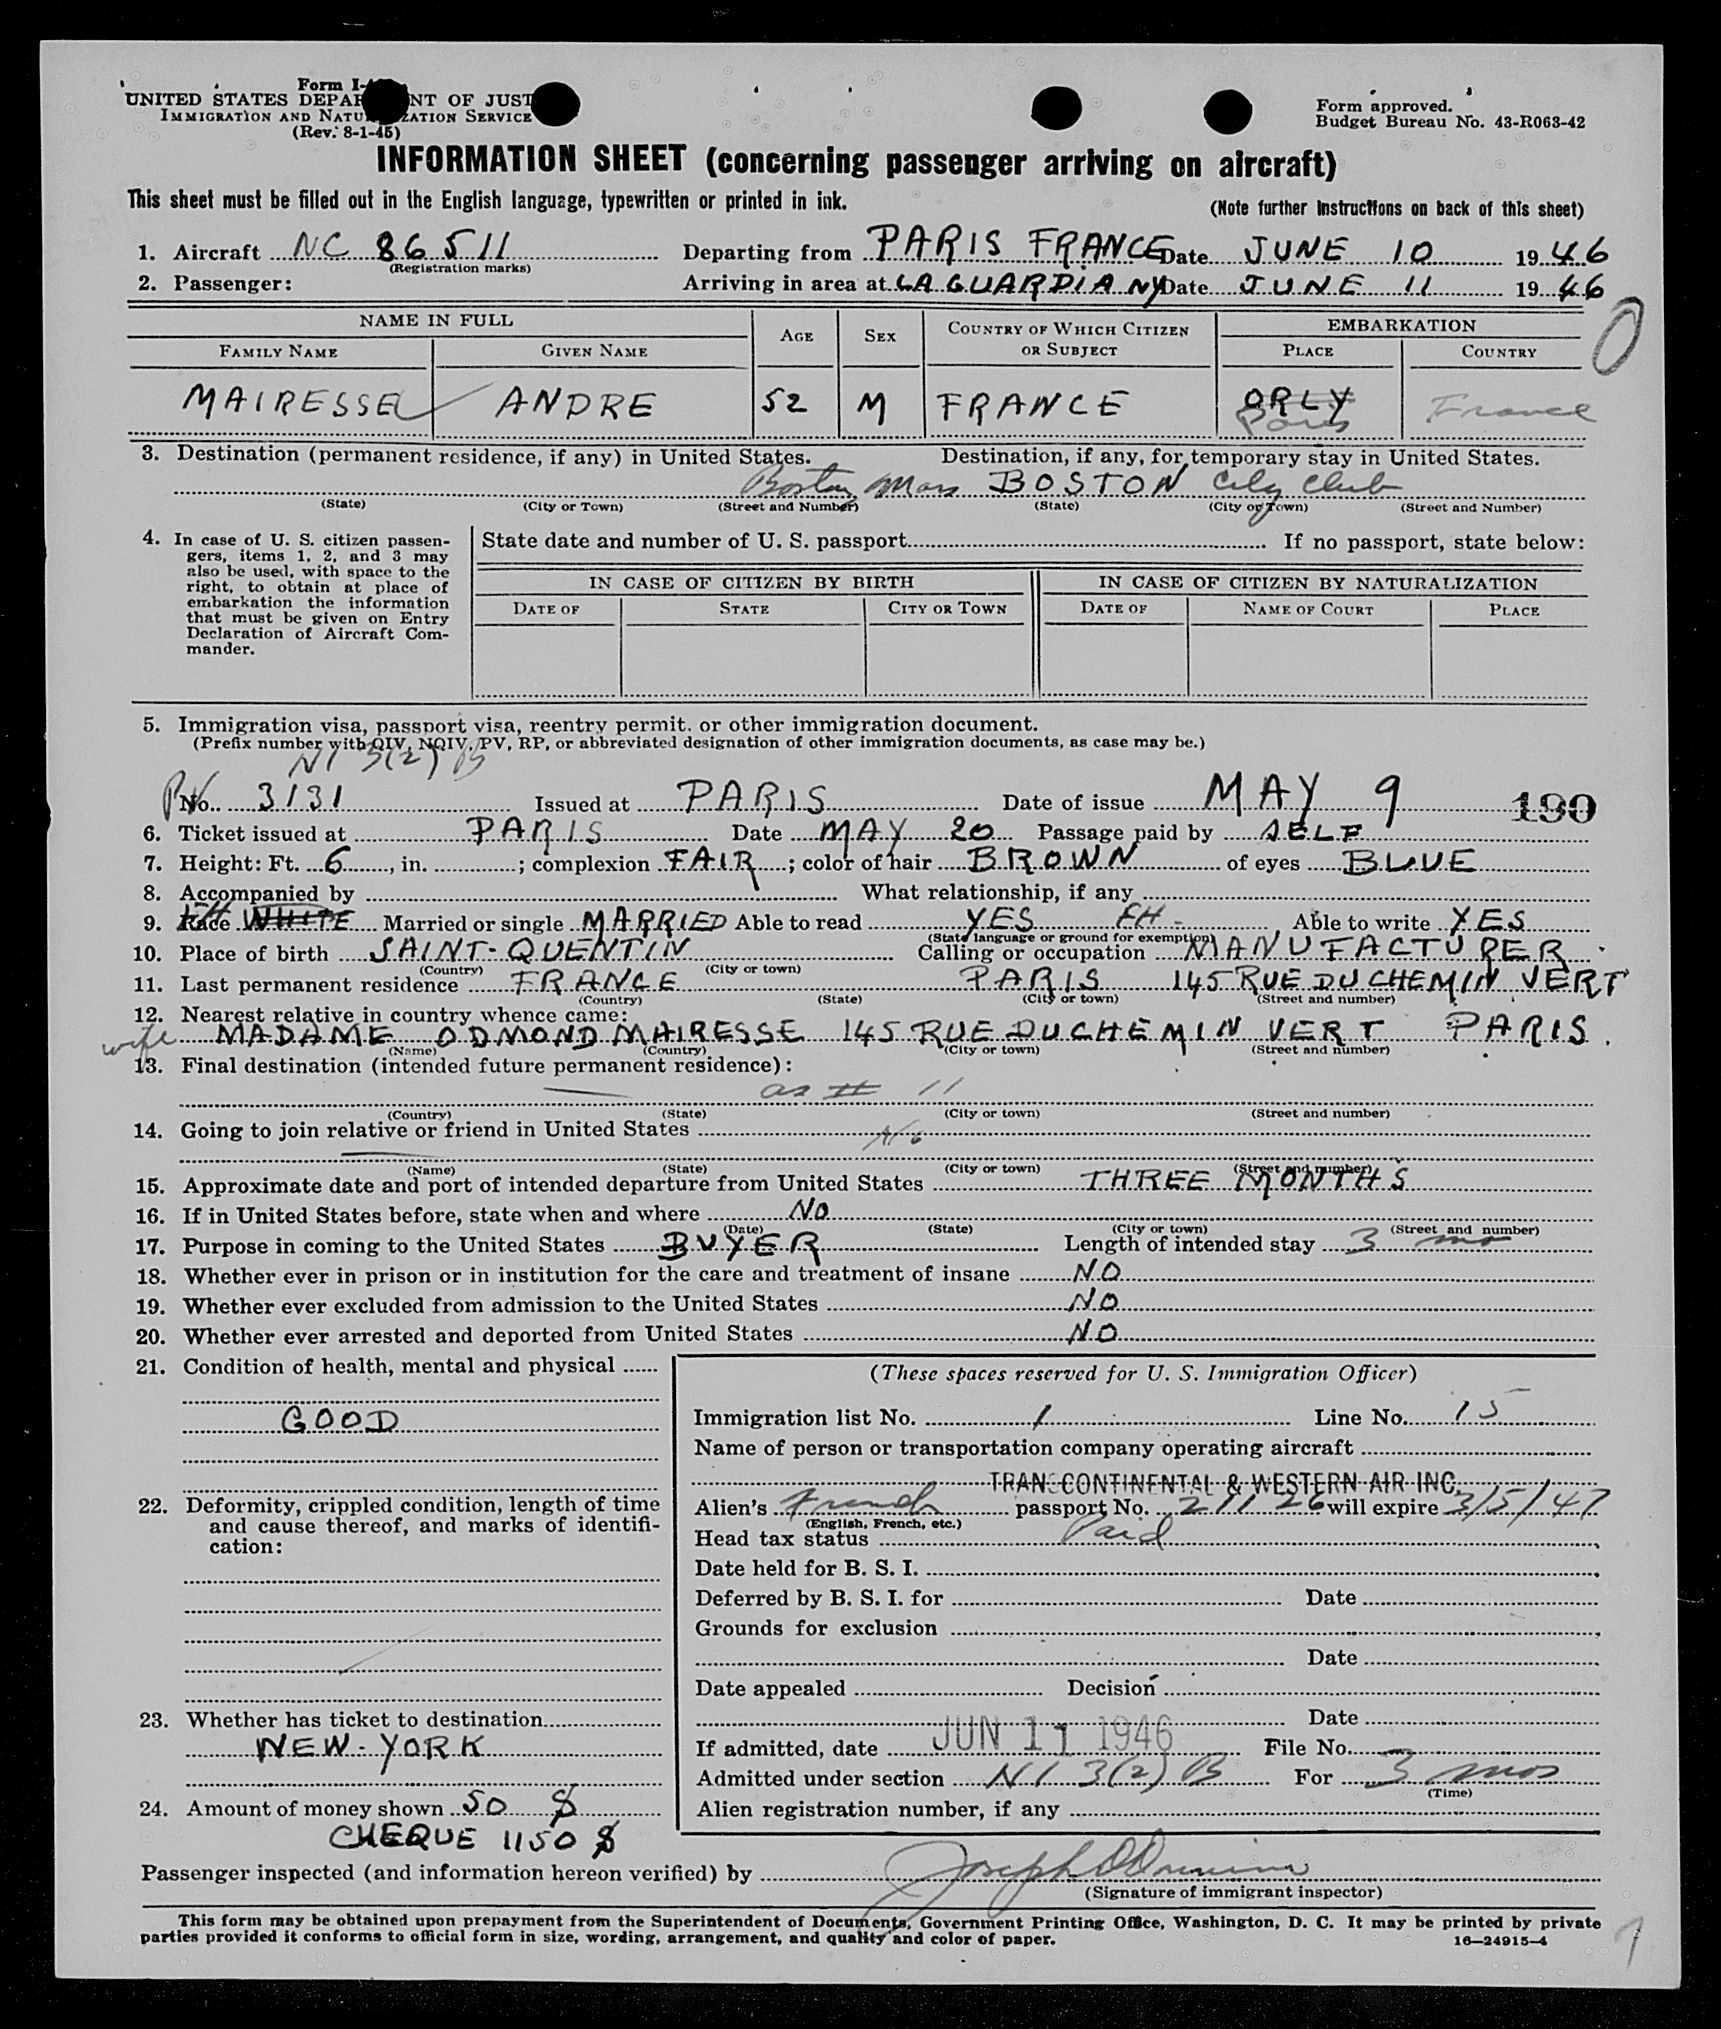 Form I-
UNITED STATES DEPARTMENT OF JUST
IMMIGRATION AND NATURALIZATION SERVICE
(Rev. 8-1-45)
Form approved.
Budget Bureau No. 43-R063-42
INFORMATION SHEET (concerning passenger arriving on aircraft)
This sheet must be filled out in the English language, typewritten or printed in ink.
(Note further instructions on back of this sheet)
1. Aircraft NC 86511 Departing from PARIS FRANCE Date JUNE 10 1946
(Registration marks)
2. Passenger: Arriving in area at LA GUARDIA NY Date JUNE 11 1946
NAME IN FULL AGE SEX COUNTRY OF WHICH CITIZEN OR SUBJECT EMBARKATION
FAMILY NAME GIVEN NAME PLACE COUNTRY
MAIRESSE ANDRE 52 M FRANCE ORLY France
Paris
3. Destination (permanent residence, if any) in United States. Destination, if any, for temporary stay in United States.
Boston Mass BOSTON City Club
(State) (City or Town) (Street and Number) (State) (City or Town) (Street and Number)
4. In case of U. S. citizen passengers, items 1, 2, and 3 may also be used, with space to the right, to obtain at place of embarkation the information that must be given on Entry Declaration of Aircraft Commander.
State date and number of U. S. passport If no passport, state below:
IN CASE OF CITIZEN BY BIRTH IN CASE OF CITIZEN BY NATURALIZATION
DATE OF STATE CITY OR TOWN DATE OF NAME OF COURT PLACE
5. Immigration visa, passport visa, reentry permit, or other immigration document.
(Prefix number with QIV, NQIV, PV, RP, or abbreviated designation of other immigration documents, as case may be.)
NI 3(2) B
PV No. 3131 Issued at PARIS Date of issue MAY 9 190
6. Ticket issued at PARIS Date MAY 20 Passage paid by SELF
7. Height: Ft. 6, in. ; complexion FAIR; color of hair BROWN of eyes BLUE
8. Accompanied by What relationship, if any
9. Race WHITE Married or single MARRIED Able to read YES FH - Able to write YES
(State language or ground for exemption)
10. Place of birth SAINT-QUENTIN Calling or occupation MANUFACTURER
(Country) (City or town)
11. Last permanent residence FRANCE PARIS 145 RUE DU CHEMIN VERT
(Country) (State) (City or town) (Street and number)
12. Nearest relative in country whence came:
wife MADAME ODMOND MAIRESSE 145 RUE DU CHEMIN VERT PARIS.
(Name) (Country) (City or town) (Street and number)
13. Final destination (intended future permanent residence):
as # 11
(Country) (State) (City or town) (Street and number)
14. Going to join relative or friend in United States No
(Name) (State) (City or town) (Street and number)
15. Approximate date and port of intended departure from United States THREE MONTHS
16. If in United States before, state when and where NO
(Date) (State) (City or town) (Street and number)
17. Purpose in coming to the United States BUYER Length of intended stay 3 mo
18. Whether ever in prison or in institution for the care and treatment of insane NO
19. Whether ever excluded from admission to the United States NO
20. Whether ever arrested and deported from United States NO
21. Condition of health, mental and physical
GOOD
22. Deformity, crippled condition, length of time and cause thereof, and marks of identification:
23. Whether has ticket to destination
NEW-YORK
24. Amount of money shown 50 $
CHEQUE 1150 $
(These spaces reserved for U. S. Immigration Officer)
Immigration list No. 1 Line No. 15
Name of person or transportation company operating aircraft
TRANSCONTINENTAL & WESTERN AIR INC.
Alien's French passport No. 21126 will expire 3/5/47
(English, French, etc.)
Head tax status Paid
Date held for B. S. I.
Deferred by B. S. I. for Date
Grounds for exclusion
Date
Date appealed Decision
Date
If admitted, date JUN 11 1946 File No.
Admitted under section NI 3(2) B For 3 mos
(Time)
Alien registration number, if any
Passenger inspected (and information hereon verified) by Joseph
(Signature of immigrant inspector)
This form may be obtained upon prepayment from the Superintendent of Documents, Government Printing Office, Washington, D. C. It may be printed by private
parties provided it conforms to official form in size, wording, arrangement, and quality and color of paper.
16—24915-4